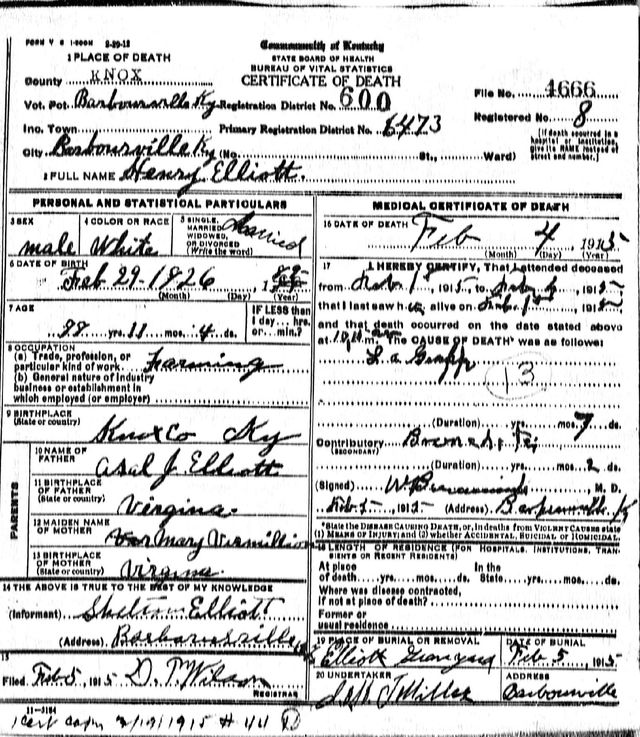 FORM V S 1-500M 8-29-13
Commonwealth of Kentucky
STATE BOARD OF HEALTH
BUREAU OF VITAL STATISTICS
CERTIFICATE OF DEATH
1 PLACE OF DEATH
County KNOX
File No. 4666
Vot. Pct. Barbourville Ky Registration District No. 600
Registered No. 8
Inc. Town Primary Registration District No. 6473
[If death occurred in a hospital or institution, give its NAME instead of street and number.]
City Barbourville Ky (No. St., Ward)
2 FULL NAME Henry Elliott.
PERSONAL AND STATISTICAL PARTICULARS
3 SEX male
4 COLOR OR RACE White
5 SINGLE, MARRIED WIDOWED, OR DIVORCED (Write the word) Married
6 DATE OF BIRTH Feb 29-1826
(Month) (Day) (Year)
7 AGE
yrs. 11 mos. 4 ds.
IF LESS than 1 day... hrs. or... min.?
8 OCCUPATION
(a) Trade, profession, or particular kind of work Farming
(b) General nature of industry business or establishment in which employed (or employer)
9 BIRTHPLACE
(State or country) Knox Co Ky
PARENTS
10 NAME OF FATHER Asal J. Elliott
11 BIRTHPLACE OF FATHER (State or country) Virginia.
12 MAIDEN NAME OF MOTHER Mary Virmillion
13 BIRTHPLACE OF MOTHER (State or country) Virginia
14 THE ABOVE IS TRUE TO THE BEST OF MY KNOWLEDGE
(Informant) Elliott
(Address) Barbourville
15
Filed Feb 5, 1915 D. T. Wilson
REGISTRAR
11-3184
MEDICAL CERTIFICATE OF DEATH
16 DATE OF DEATH Feb 4, 1915
(Month) (Day) (Year)
17 I HEREBY CERTIFY, That I attended deceased
from 1, 1915, to 1915
that I last saw h alive on 1915
and that death occurred on the date stated above
at m. The CAUSE OF DEATH* was as follows:
La Gripp
13
(Duration) yrs. mos. 7 ds.
Contributory
(SECONDARY)
(Duration) yrs. mos. 2 ds.
(Signed) M. D.
Feb 5, 1915 (Address)
*State the DISEASE CAUSING DEATH, or, in deaths from VIOLENT CAUSES state
(1) MEANS OF INJURY; and (2) whether ACCIDENTAL, SUICIDAL or HOMICIDAL.
18 LENGTH OF RESIDENCE (FOR HOSPITALS, INSTITUTIONS, TRANSIENTS OR RECENT RESIDENTS)
At place of death yrs. mos. ds. In the State yrs. mos. ds.
Where was disease contracted,
if not at place of death?
Former or
usual residence
19 PLACE OF BURIAL OR REMOVAL Elliott Graveyard
DATE OF BURIAL Feb. 5, 1915
20 UNDERTAKER Miller
ADDRESS Barbourville
1 cert copy 1915 # 44